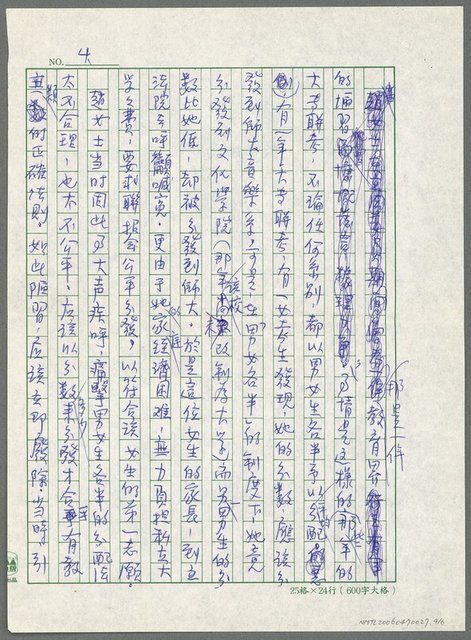 NO. 4
教育界
那是一件
的陋習 事情是這樣的 那年的
大專聯考，不論任何系別，都以男女生各半予以分配
有一年大專聯考，有一女考生發現，她的分數應該分
發到師大音樂系，可是在「男女各半」的制度下，她竟
分發到文化學院（那年該校尚未改制為大學）而男生的分
數比她低，卻被分發到師大。於是這位女生的家長，到立
法院去呼籲喊冤，更由于她家庭經濟困難，無力負担私立大
學學費，要求聯招會公平分發，以符合該女生的第一志願。
趙女士當時因此乃大声疾呼，痛擊男女生各半的分配法
太不合理，也太不公平，應該以分數多少來分發才合乎有教
無類的正確法則。如此陋習，應該立即廢除當時引
25格×24行（600字大格）
NMTL20060470027. 4/6